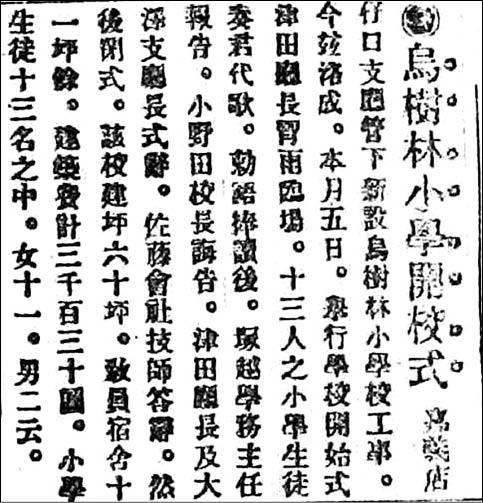 ◉烏樹林小學開校式 嘉義店
仔口支廳管下新設烏樹林小學校工事。
今茲落成。本月五日。舉行學校開始式
津田廳長冒雨臨場。十三人之小學生徒
奏君代歌。勅語捧讀後。塚越學務主任
報告。小野田校長誨告。津田廳長及大
澤支廳長式辭。佐藤會社技師答辭。然
後閉式。該校建坪六十坪。敎員宿舍十
一坪餘。建築費計三千百三十圓。小學
生徒十三名之中。女十一。男二云。